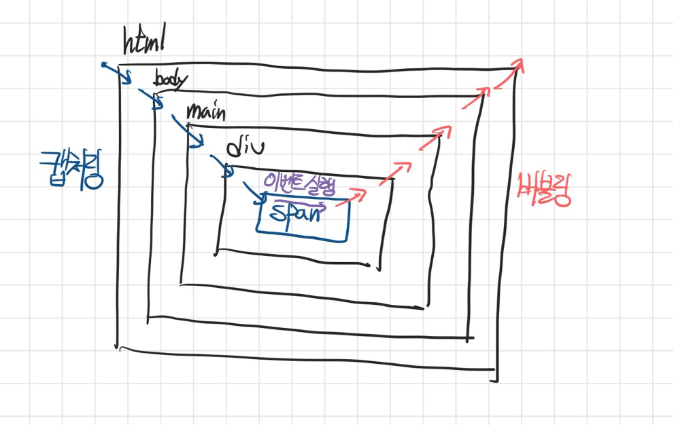 html
body
main
div
캡처링
이벤트 실행
span
버블링